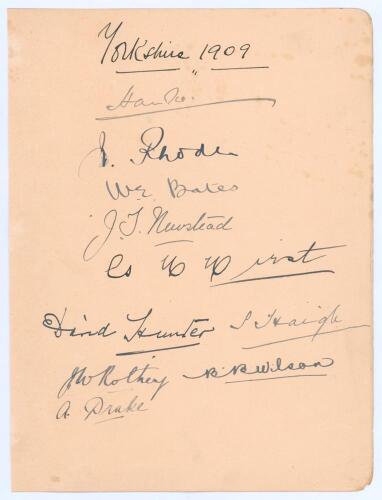 Yorkshire 1909
"
Hawke.
W. Rhodes
W.E. Bates
J.T. Newstead
Geo H Hirst
David Hunter S Haigh
J W Rothery B.B. Wilson
A. Drake